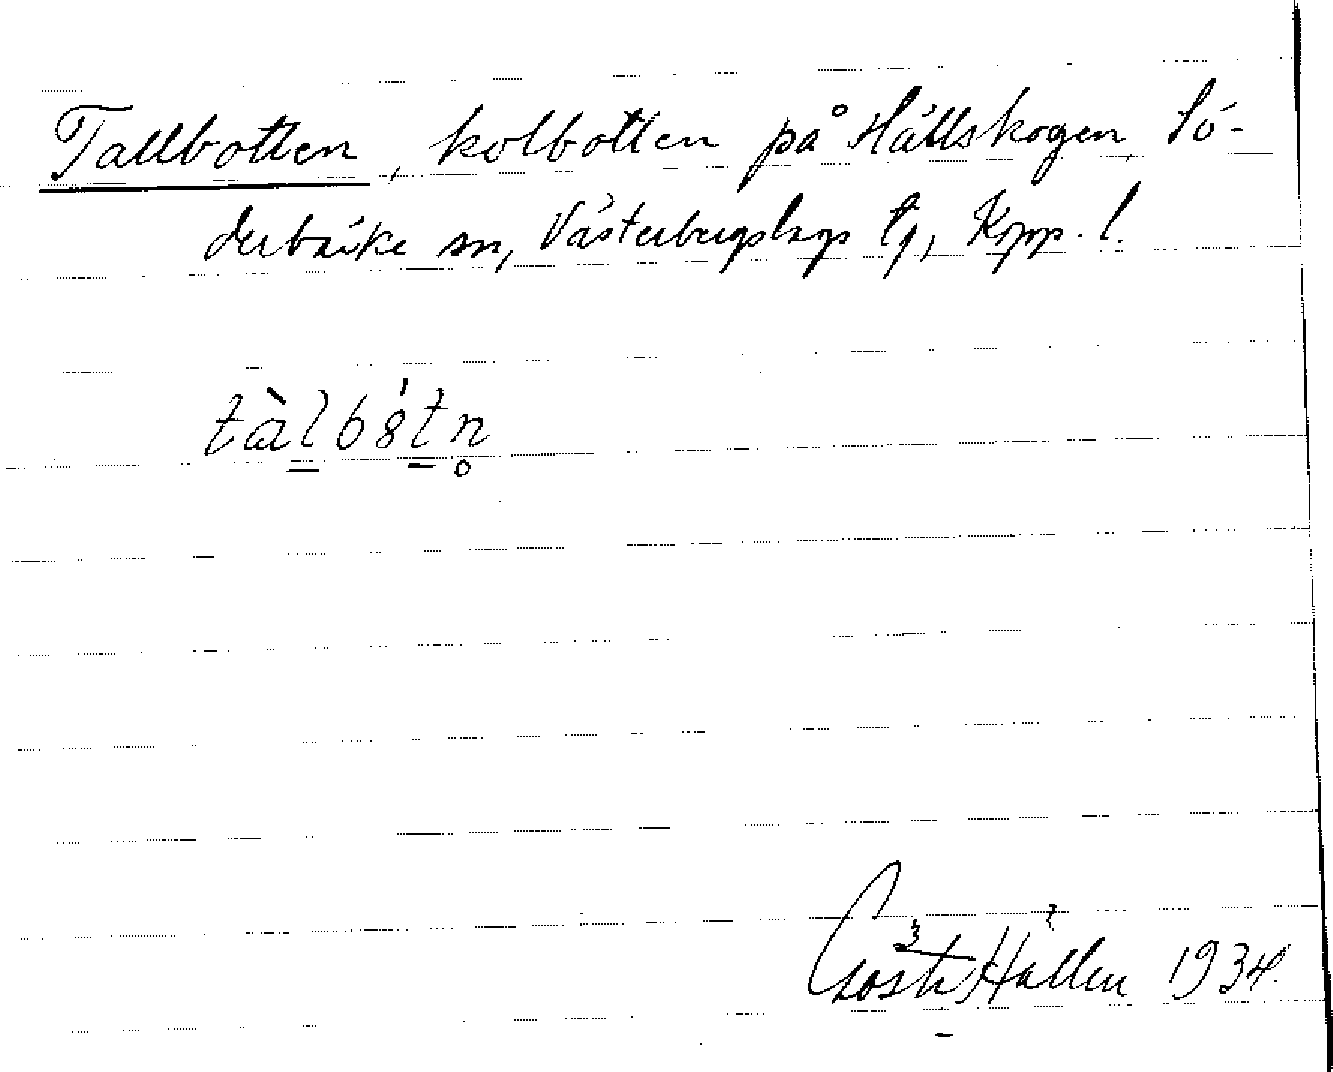 Tallbotten, kolbotten på Hällskogen, Sö-
derbärke sn, Västerbergslags tg, Kopp. l.
tàlbótn
Gösta Hallen 1934.